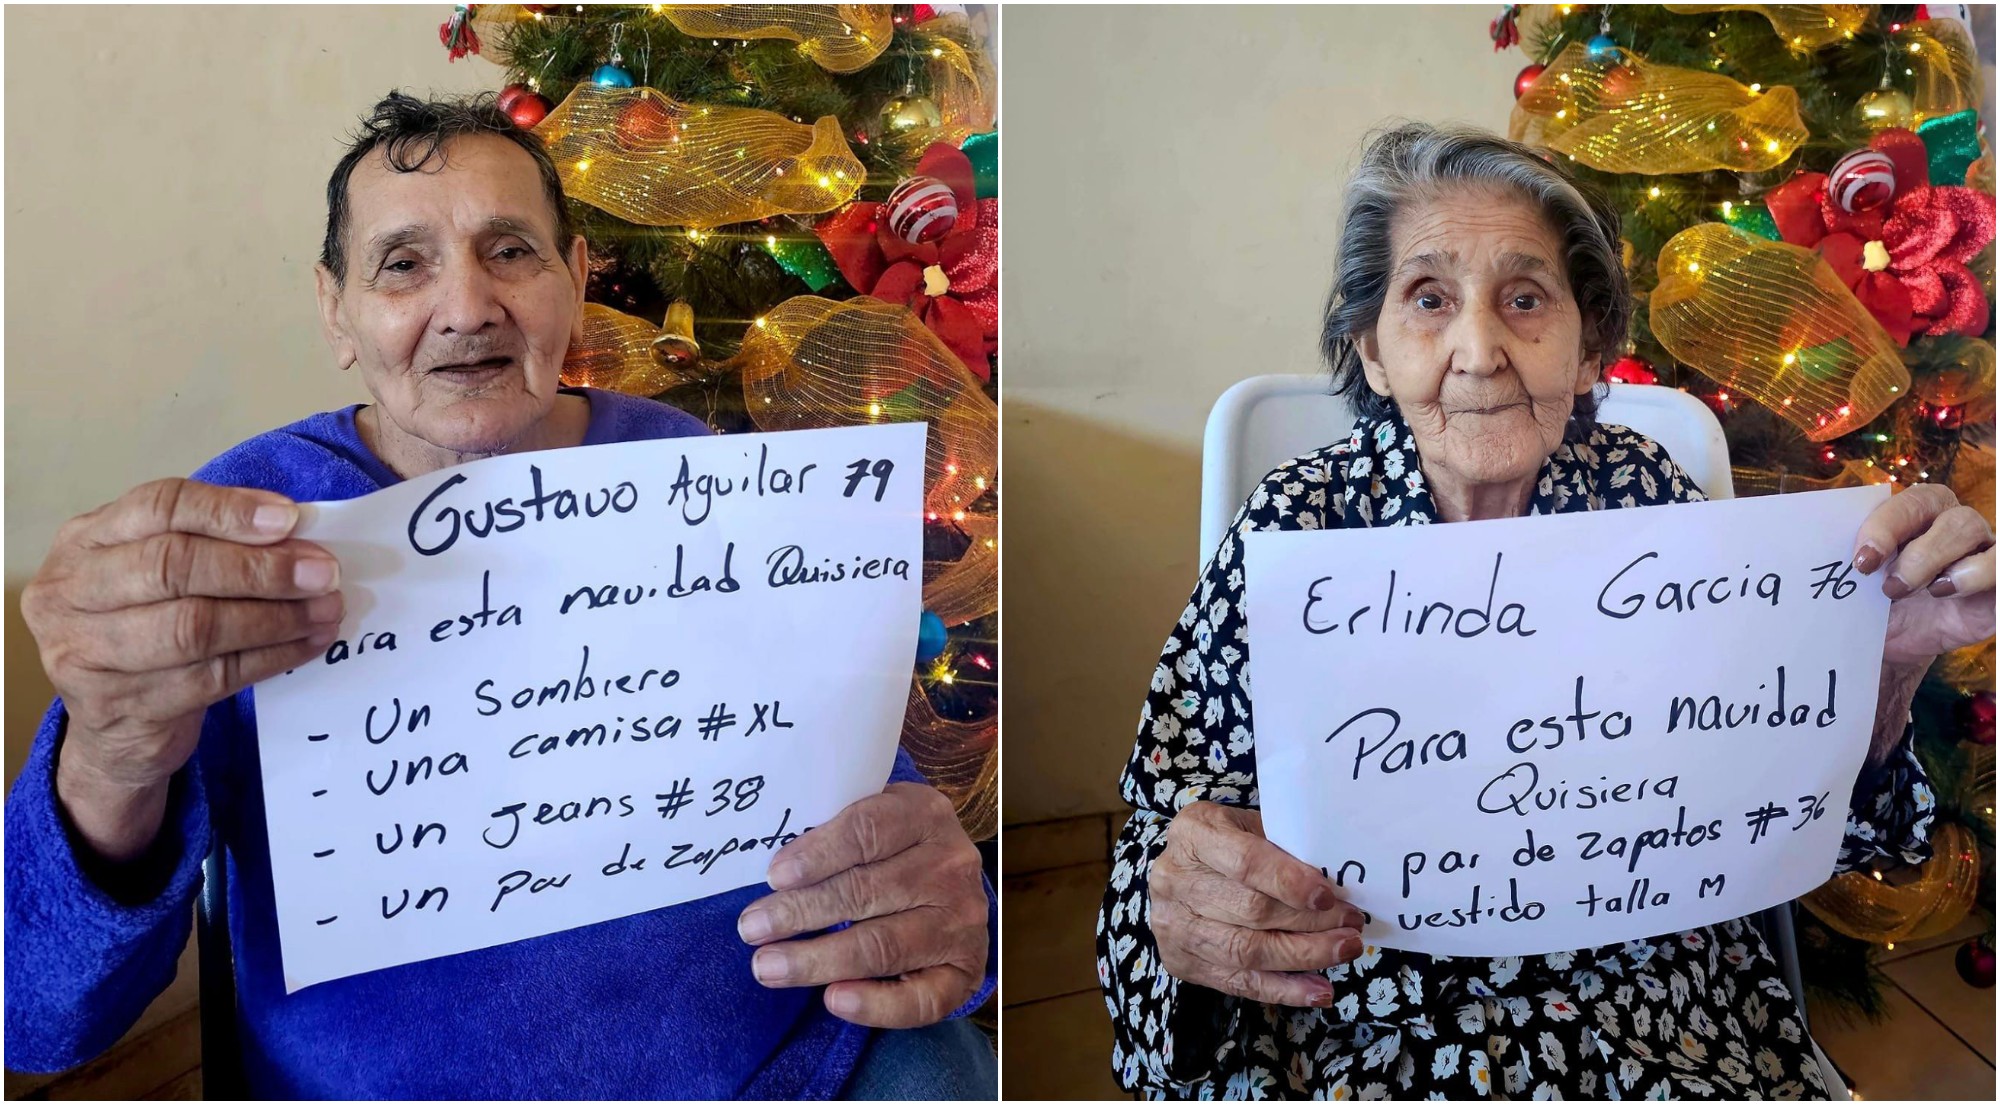 Gustavo Aguilar 79
Para esta navidad Quisiera
- Un Sombrero
- una camisa # XL
- un jeans # 38
- un par de zapatos
Erlinda Garcia 76
Para esta navidad
Quisiera
un par de zapatos # 36
vestido talla M